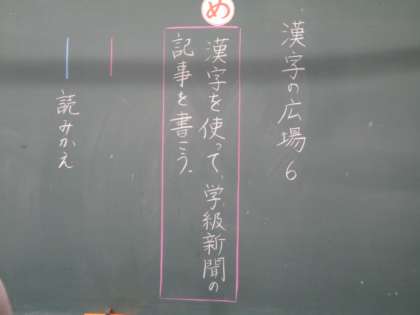 漢字の広場6
め
漢字を使って、学級新聞の
記事を書こう。
読みかえ